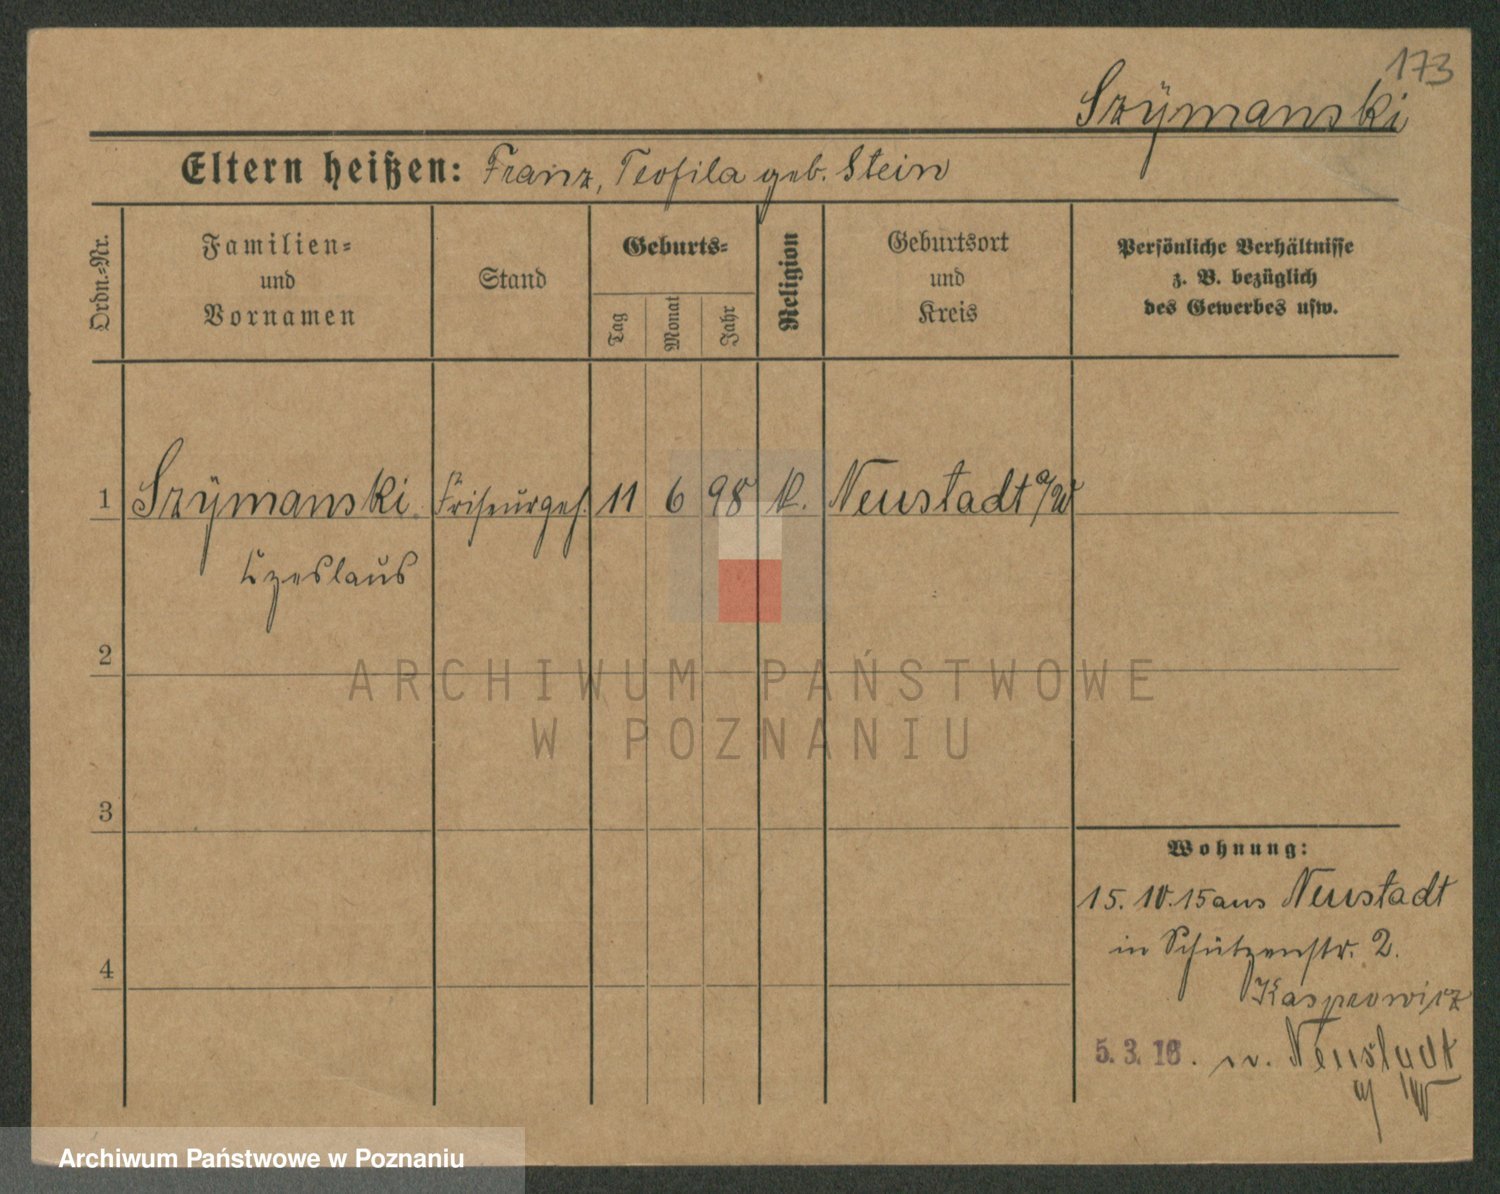 173
Szÿmanski
Eltern heißen: Franz, Teofila geb. Stein
Ordn.=Nr.
Familien=
und
Vornamen
Stand
Geburts=
Tag
Monat
Jahr
Religion
Geburtsort
und
Kreis
Persönliche Verhältnisse
z. B. bezüglich
des Gewerbes usw.
1 Szÿmanski Friseurgeh. 11 6 98 k. Neustadt a/W
Czeslaus
2
3
4
Wohnung:
15. 10. 15 aus Neustadt
in Schützenstr. 2.
Kasprowicz
5. 3. 16. n. Neustadt
a/W
ARCHIWUM PAŃSTWOWE
W POZNANIU
Archiwum Państwowe w Poznaniu